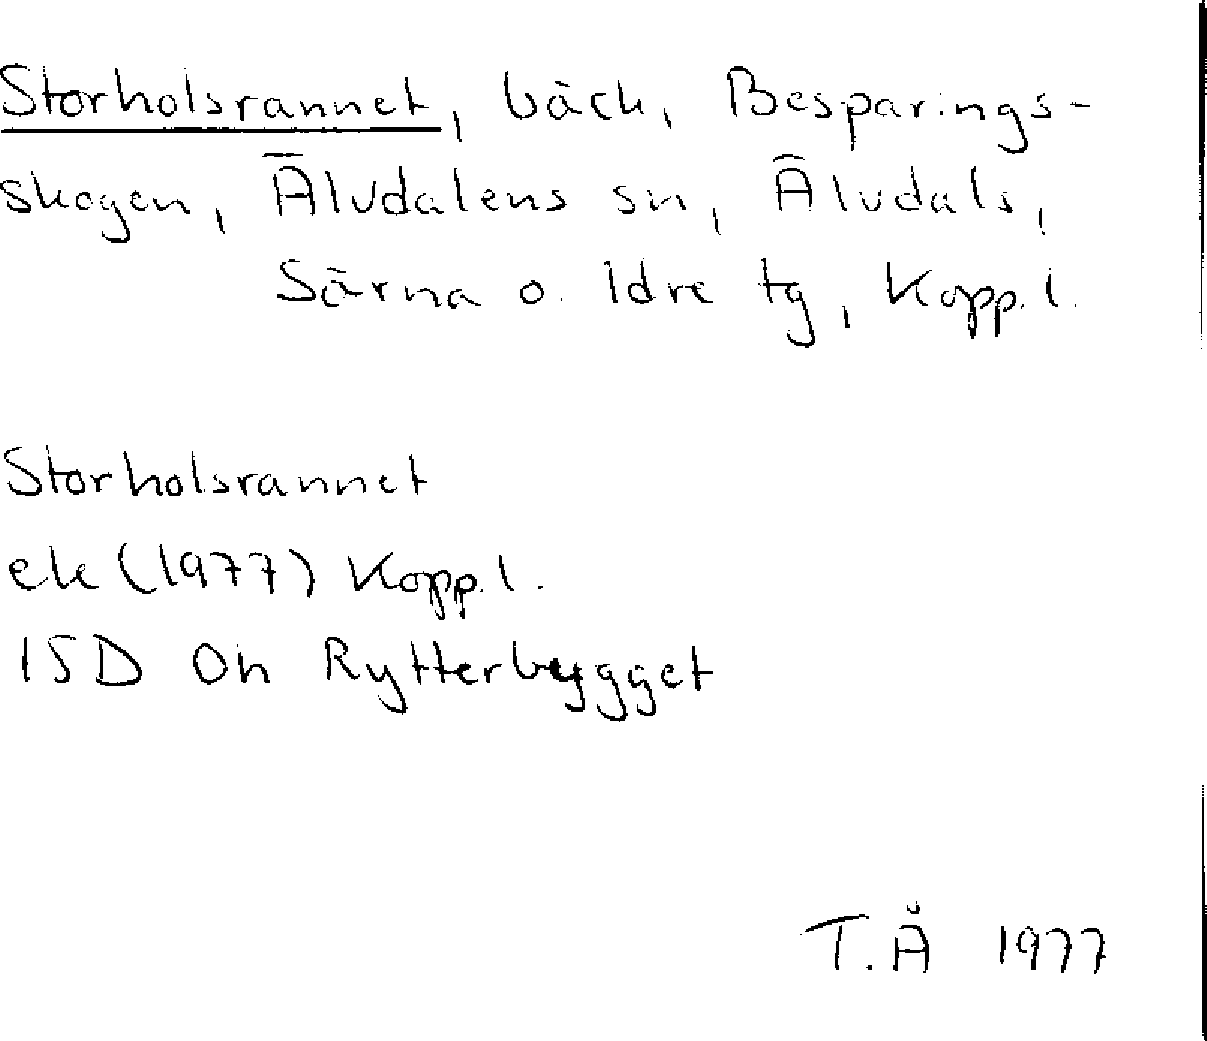 Storholsrannet, bäck, Besparings-
skogen, Älvdalens sn, Älvdals,
Särna o. Idre tg, Kopp. l.
Storholsrannet
ek (1977) Kopp. l.
15D 0h Rytterbygget
T.Å 1977